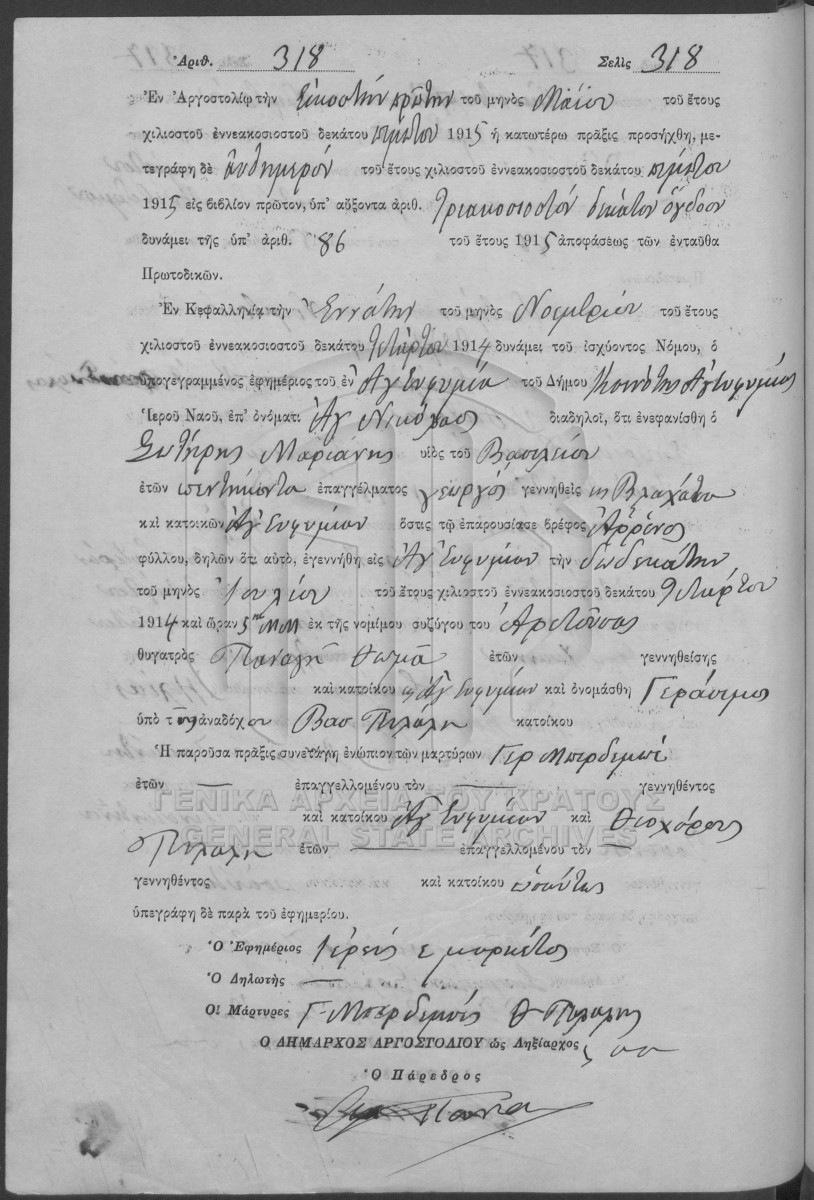 Ἀριθ. 318 Σελὶς 318
Ἐν Ἀργοστολίῳ τὴν Εἰκοστὴν πρώτην τοῦ μηνὸς Μαΐου τοῦ ἔτους
χιλιοστοῦ ἐννεακοσιοστοῦ δεκάτου πέμπτου 1915 ἡ κατωτέρω πρᾶξις προσήχθη, με-
τεγράφη δὲ αὐθημερόν τοῦ ἔτους χιλιοστοῦ ἐννεακοσιοστοῦ δεκάτου πέμπτου
1915 εἰς βιβλίον πρῶτον, ὑπ' αὔξοντα ἀριθ. τριακοσιοστόν δέκατον ὄγδοον
δυνάμει τῆς ὑπ' ἀριθ. 86 τοῦ ἔτους 1915 ἀποφάσεως τῶν ἐνταῦθα
Πρωτοδικῶν.
Ἐν Κεφαλληνίᾳ τὴν Ἐννάτην τοῦ μηνὸς Νοεμβρίου τοῦ ἔτους
χιλιοστοῦ ἐννεακοσιοστοῦ δεκάτου τετάρτου 1914 δυνάμει τοῦ ἰσχύοντος Νόμου, ὁ
ὑπογεγραμμένος ἐφημέριος τοῦ ἐν Ἁγ Εὐφημίᾳ τοῦ Δήμου Κοινότης Ἁγ Εὐφημίας
Ἱεροῦ Ναοῦ, ἐπ' ὀνόματι Ἁγ Νικόλαος διαδηλοῖ, ὅτι ἐνεφανίσθη ὁ
Σωτήρης Μαριάνης υἱὸς τοῦ Βασιλείου
ἐτῶν πεντήκοντα ἐπαγγέλματος γεωργός γεννηθεὶς εἰς Βλαχάτα
καὶ κατοικῶν Ἁγ Εὐφημίαν ὅστις τῷ ἐπαρουσίασε βρέφος ἄρρενος
φύλλου, δηλῶν ὅτι αὐτὸ, ἐγεννήθη εἰς Ἁγ Εὐφημίαν τὴν δωδεκάτην
τοῦ μηνὸς Ἰουλίου τοῦ ἔτους χιλιοστοῦ ἐννεακοσιοστοῦ δεκάτου τετάρτου
1914 καὶ ὥραν 5ην ΜΜ ἐκ τῆς νομίμου συζύγου του Ἀρετούσας
θυγατρὸς Παναγῆ Θωμᾶ ἐτῶν γεννηθείσης
καὶ κατοίκου Ἁγ Εὐφημίαν καὶ ὀνομάσθη Γεράσιμος
ὑπὸ τοῦ ἀναδόχου Βασ κατοίκου
Ἡ παροῦσα πρᾶξις συνετάγη ἐνώπιον τῶν μαρτύρων Γερ
ἐτῶν — ἐπαγγελλομένου τὸν — γεννηθέντος
ΓΕΝΙΚΑ ΑΡΧΕΙΑ ΤΟΥ ΚΡΑΤΟΥΣ
καὶ κατοίκου Ἁγ Εὐφημίαν καὶ Θεοχάρους
GENERAL STATE ARCHIVES
ἐτῶν — ἐπαγγελλομένου τὸν —
γεννηθέντος καὶ κατοίκου ὡσαύτως
ὑπεγράφη δὲ παρὰ τοῦ ἐφημερίου.
Ὁ Ἐφημέριος Ἱερεύς
Ὁ Δηλωτὴς —
Οἱ Μάρτυρες Γ. Θ
Ο ΔΗΜΑΡΧΟΣ ΑΡΓΟΣΤΟΛΙΟΥ ὡς Ληξίαρχος
Ὁ Πάρεδρος